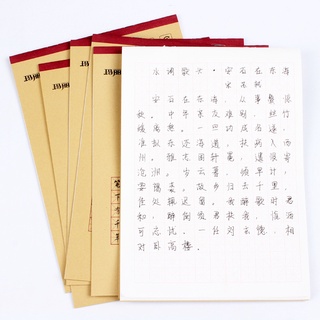 水调歌头·安石在东海
宋 苏轼
安石在东海，从事鬓惊
秋。中年亲友难别，丝竹
缓离愁。一旦功成名遂，
准拟东还海道，扶病入西
州。雅志困轩冕，遗恨寄
沧洲。岁云暮，须早计，
要褐裘。故乡归去千里，
佳处辄迟留。我醉歌时君
和，醉倒须君扶我，惟酒
可忘忧。一任刘玄德，相
对卧高楼。